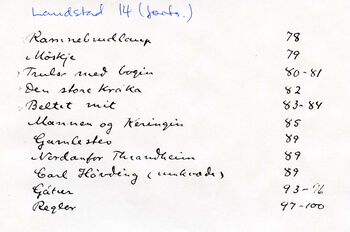 Landstad 14 (forts.)
Rammebrudlaup 78
Möskje 79
Truls med bogin 80-81
Den store kråka 82
Beltet mit 83-84
Mannen og Keringin 85
Gamlestev 89
Nordanfor Thrandheim 89
Carl Hövding (umkvæde) 89
Gåtur 93-96
Regler 97-100